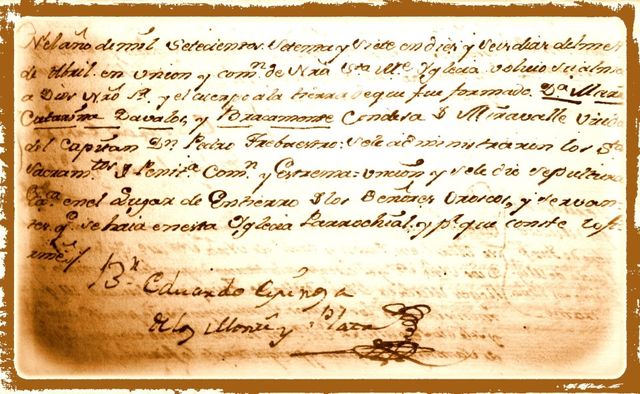 Nel año de mil Setecientos Setenta y Siete en diez y Seis dias del mes
de Abril. en union y comn. de Nra Sta Me. Yglecia volvio su alma
a Dios Nro Sr. y el cuerpo a la tierra de que fue formado. Da. Maria
Catarina Davalos, y Bracamonte Condesa D Miravalle Viuda
del Capitan Dn. Pedro Trebuestro: se le administraron los Stos
Sacramtos. D Penita. Comn. y Extrema-uncion y se le dio sepultura
en el Lugar de Entierro D los Señores Orosco, y Servan
tes. q. se haia en esta Yglecia Parrochial. y pa. que conste lo fir
me
Br. Eduardo
de los Montes y Plata